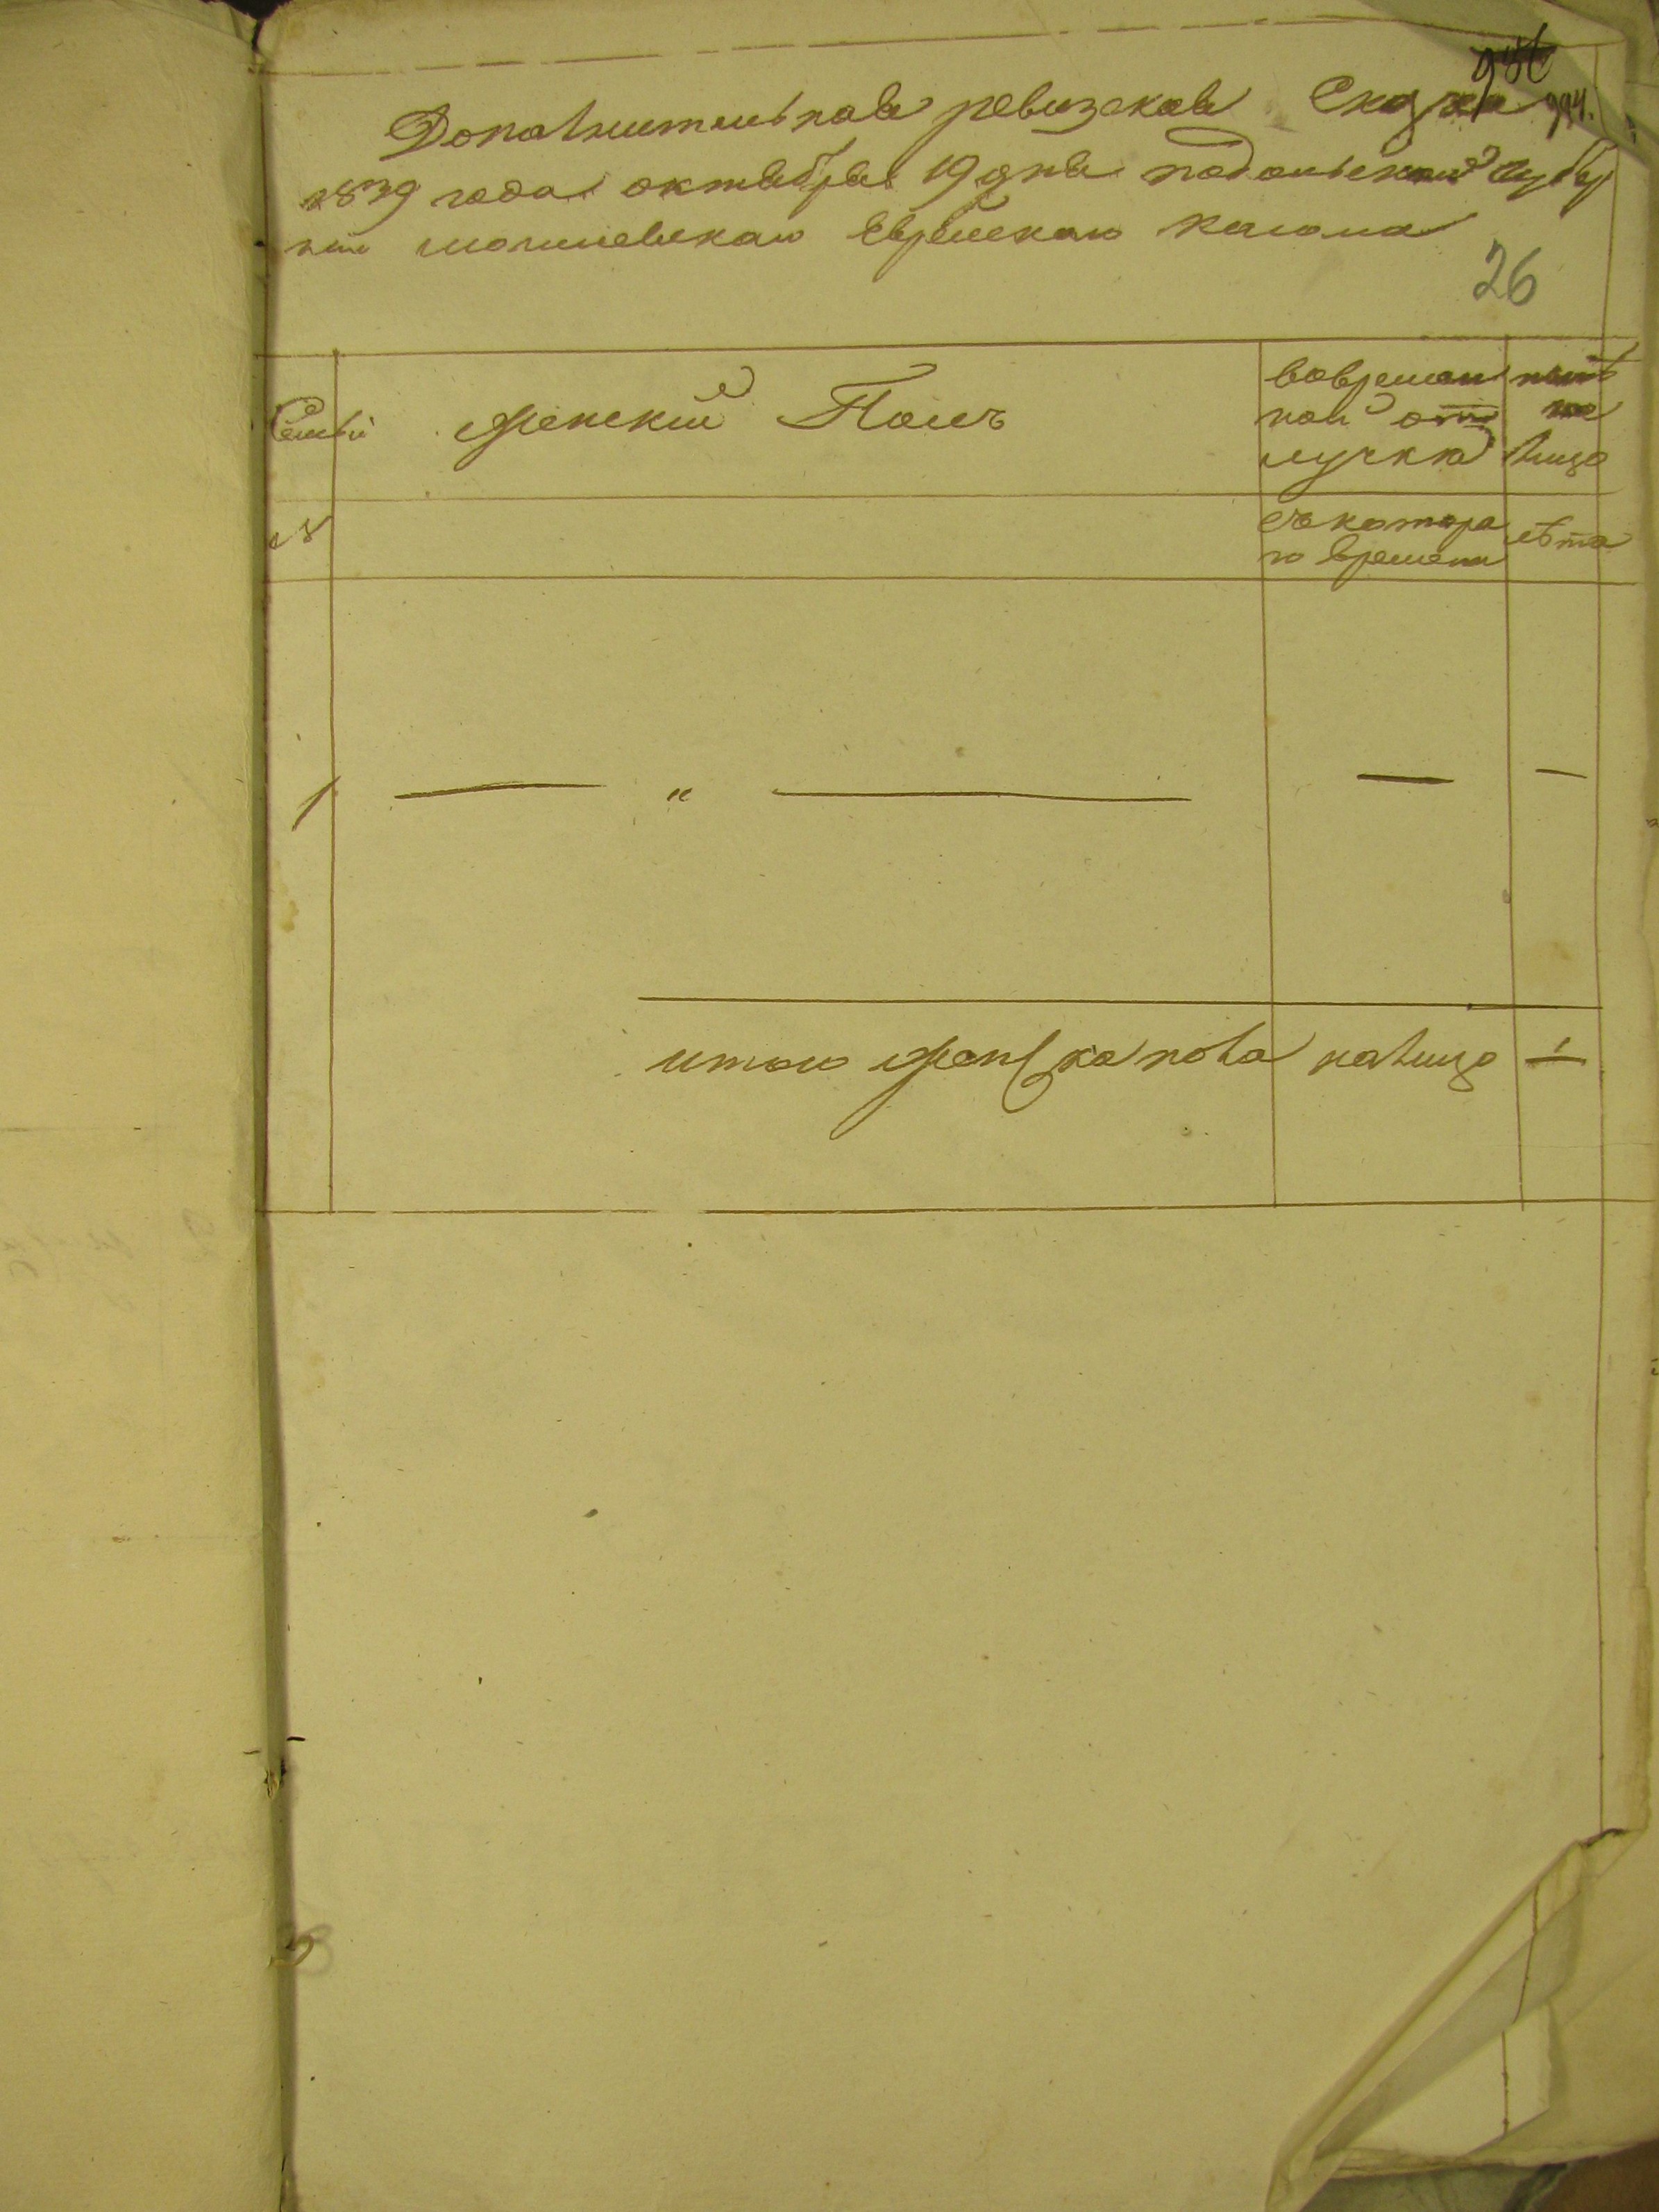 Дополнительная ревизская Сказка
994.
1839 года октября 19 дня подольской губер
нии могилевскаго Еврейскаго кагала
26
Семьи
женский Полъ
вовремен
ной от
лучкѣ
на
лицо
№
съ котора
го времени
лѣта
1 — „ — — —
итого женска пола налицо —